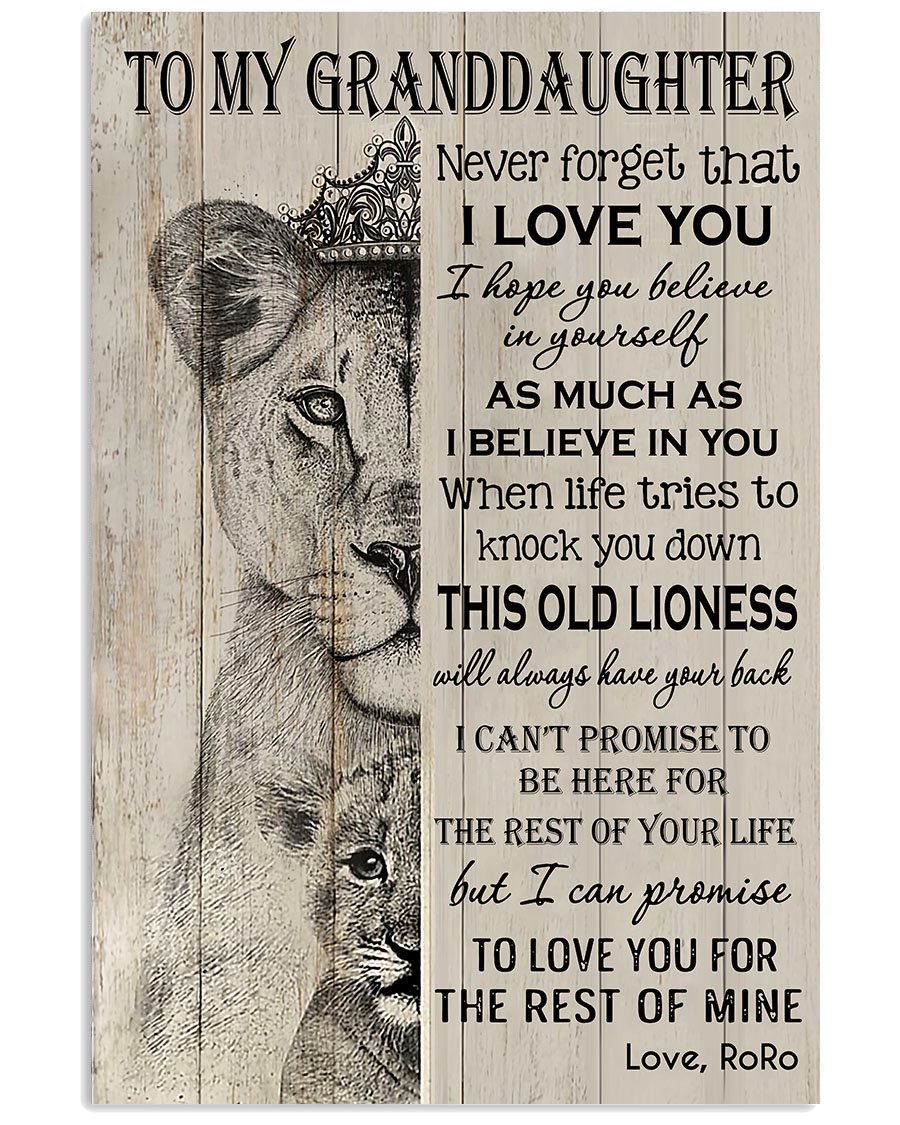 TO MY GRANDDAUGHTER
Never forget that
I LOVE YOU
I hope you believe
in yourself
AS MUCH AS
I BELIEVE IN YOU
When life tries to
knock you down
THIS OLD LIONESS
will always have your back
I CAN'T PROMISE TO
BE HERE FOR
THE REST OF YOUR LIFE
but I can promise
TO LOVE YOU FOR
THE REST OF MINE
Love, RoRo